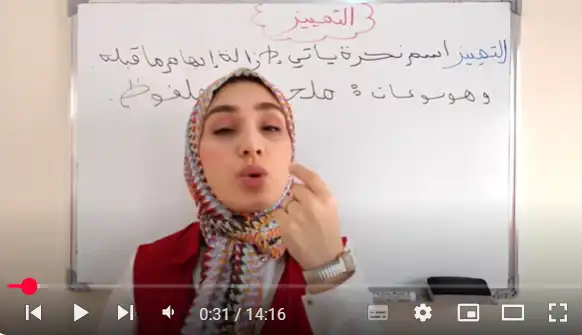 التمييز
التمييز اسم نكرة يأتي لإزالة إبهام ما قبله.
وهو نوعان: ملحوظ ملفوظ.
0:31 / 14:16